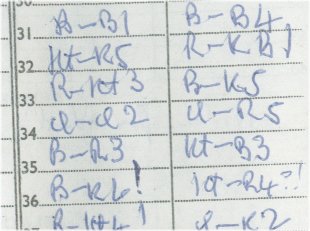 B-B1 B-B4
31 Kt-R5 R-KB1
32 R-Kt3 B-K5
33 Q-Q2 Q-R5
34 B-R3 Kt-B3
35 B-K6! Kt-B4?!
36 R-Kt4! Q-K2